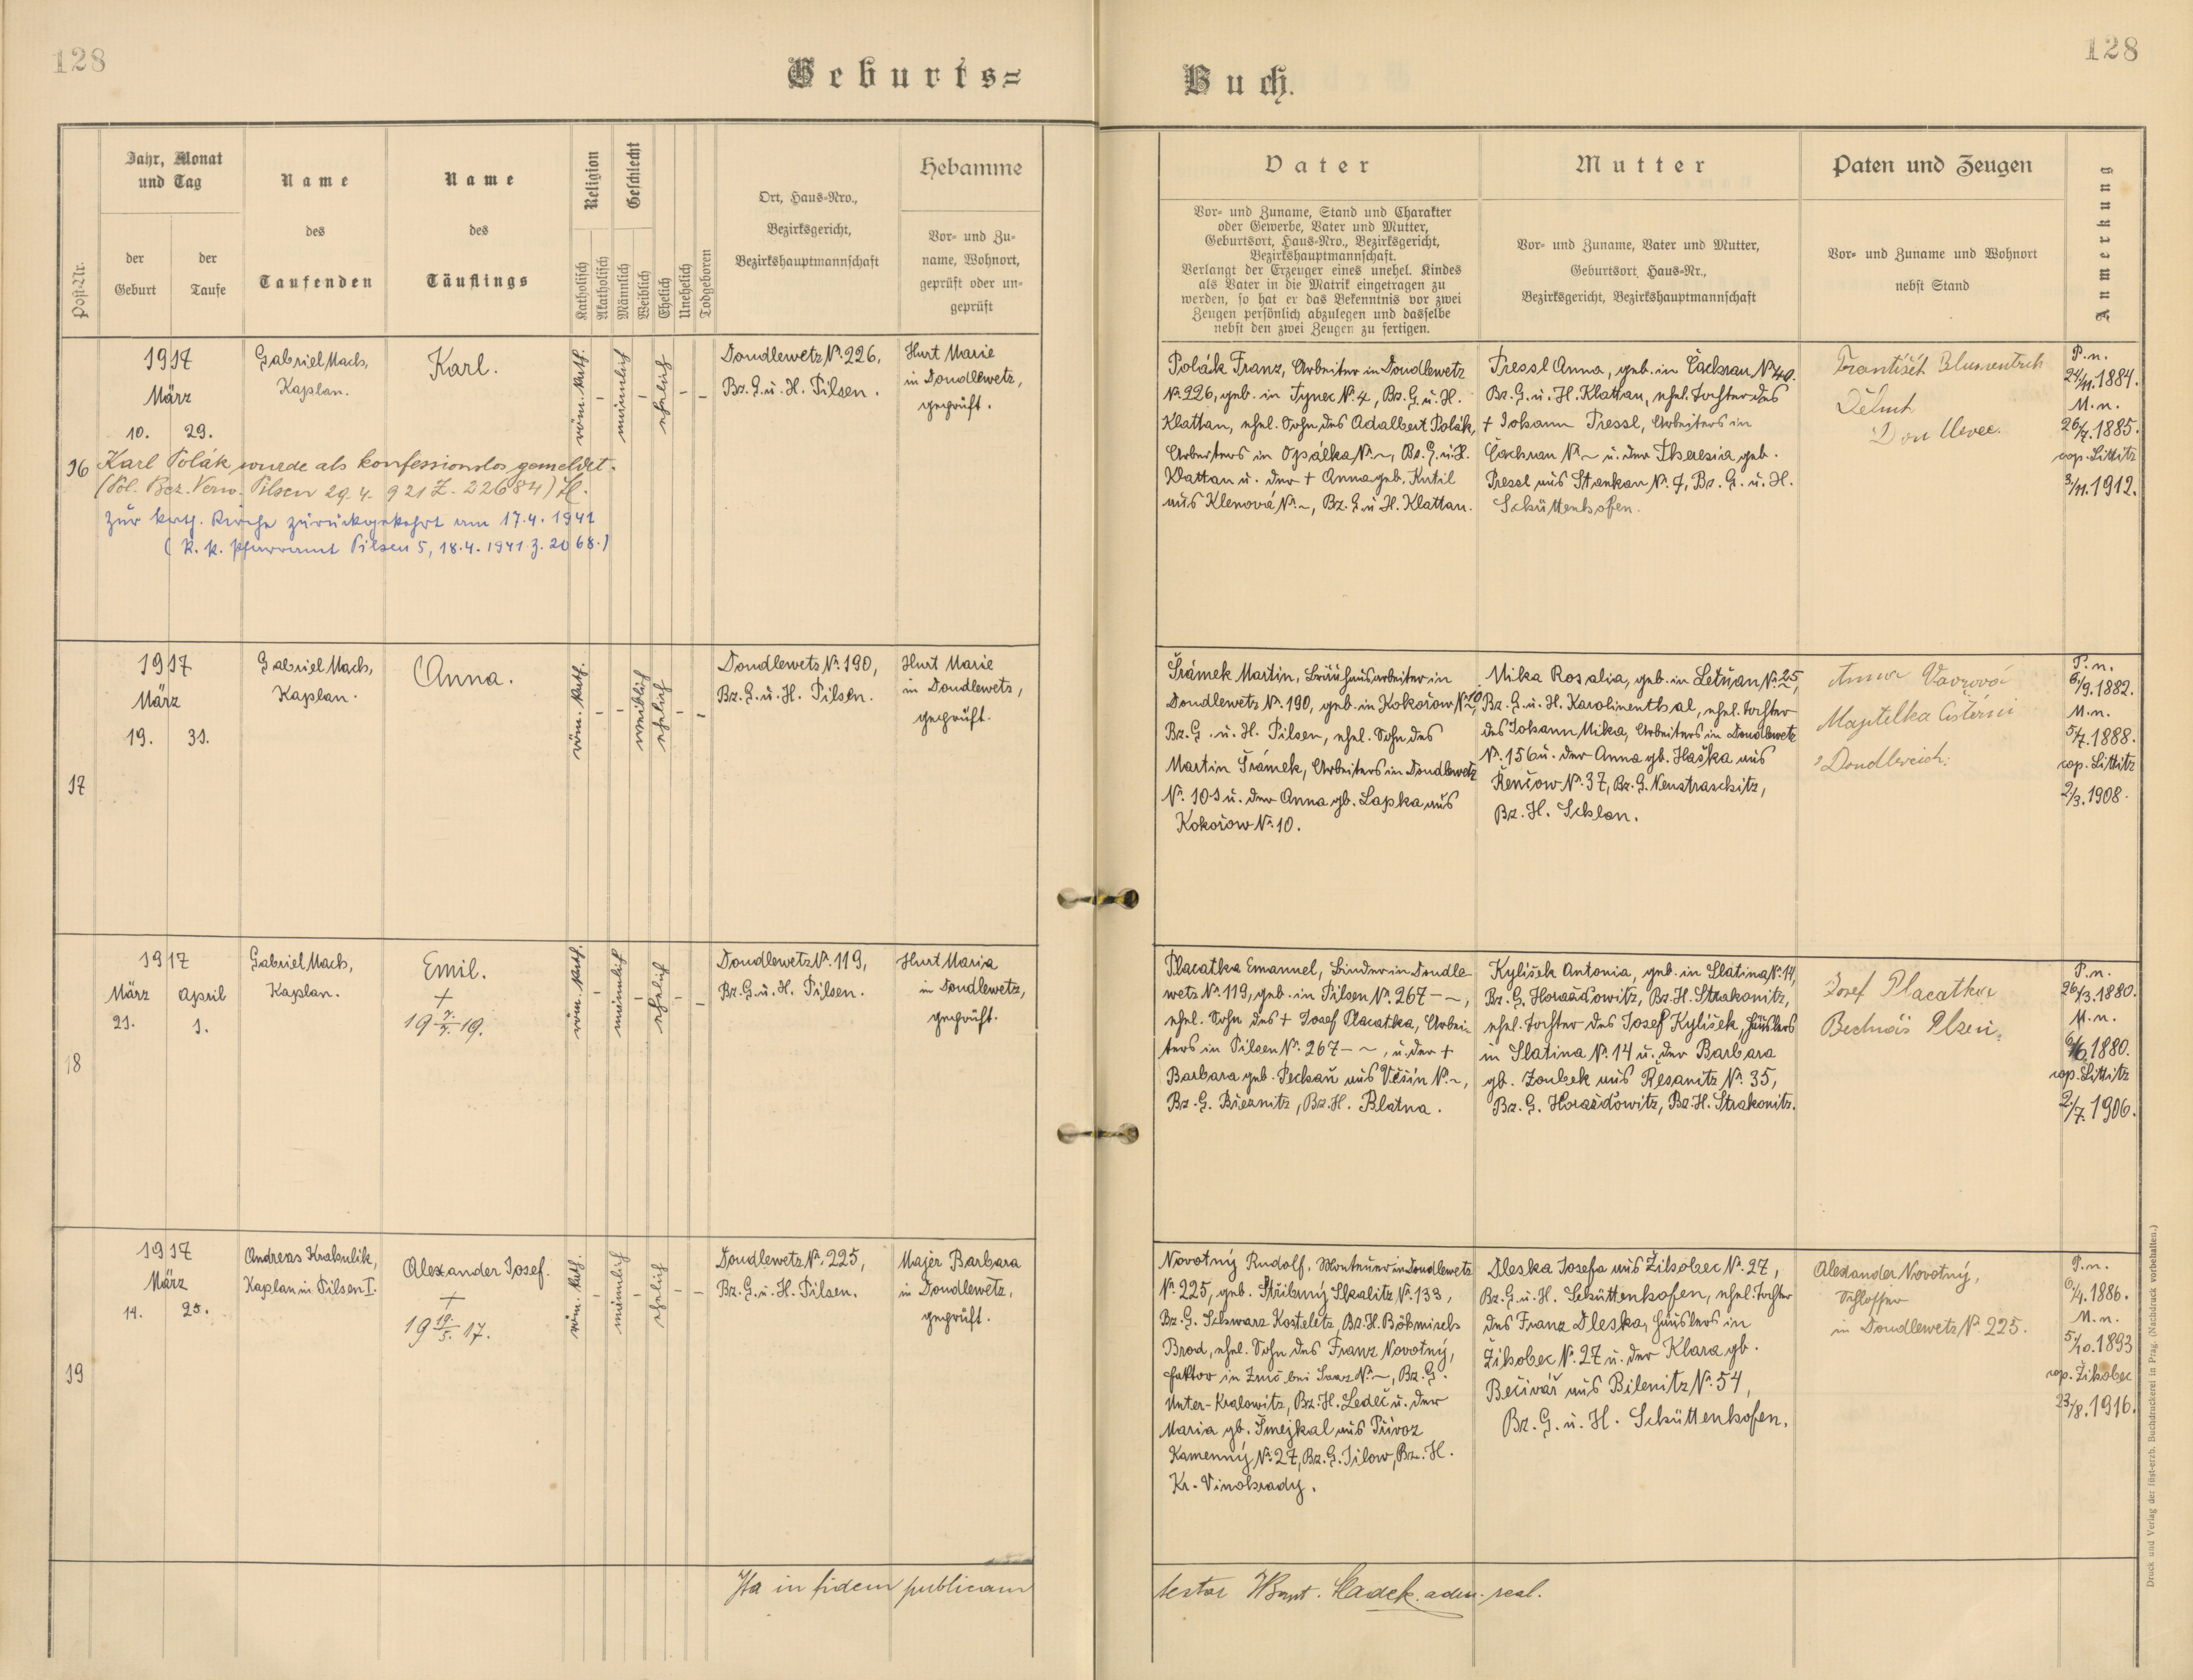 128
Geburts=
Jahr, Monat
und Tag
der
Geburt
der
Taufe
Post-Nr.
Name
des
Taufenden
Name
des
Täuflings
Religion
Katholisch
Akatholisch
Geschlecht
Männlich
Weiblich
Ehelich
Unehelich
Todgeboren
Ort, Haus-Nro.,
Bezirksgericht,
Bezirkshauptmannschaft
Hebamme
Vor- und Zu-
name, Wohnort,
geprüft oder un-
geprüft
16
1917
März
10. 29.
Gabriel Mach,
Kaplan.
Karl.
röm. kath.
-
männlich
-
ehelich
-
-
Doudlewetz No. 226,
Bz. G. u. H. Pilsen.
Hurt Marie
in Doudlewetz,
geprüft.
Karl Polák wurde als konfessionslos gemeldet.
(Pol. Bez. Verw. Pilsen 29. 4. 921 Z. 22684)
Zur kath. Kirche zurückgekehrt am 17.4.1941
(R. k. Pfarramt Pilsen 5, 18.4.1941. Z. 2068.)
17
1917
März
19. 31.
Gabriel Mach,
Kaplan.
Anna.
röm. kath.
-
-
weiblich
ehelich
-
-
Doudlewetz No. 190,
Bz. G. u. H. Pilsen.
Hurt Marie
in Doudlewetz,
geprüft.
18
1917
März April
21. 1.
Gabriel Mach,
Kaplan.
Emil.
+
19 7./7. 19.
röm. kath.
-
männlich
-
ehelich
-
-
Doudlewetz No. 119,
Bz. G. u. H. Pilsen.
Hurt Maria
in Doudlewetz,
geprüft.
19
1917
März
14. 25.
Andreas Krahulik,
Kaplan in Pilsen I.
Alexander Josef.
+
19 19./5. 17.
röm. kath.
-
männlich
-
ehelich
-
-
Doudlewetz No. 225,
Bz. G. u. H. Pilsen.
Majer Barbara
in Doudlewetz,
geprüft.
Ita in fidem publicam
128
Buch.
Vater
Vor- und Zuname, Stand und Charakter
oder Gewerbe, Vater und Mutter,
Geburtsort, Haus-Nro., Bezirksgericht,
Bezirkshauptmannschaft.
Verlangt der Erzeuger eines unehel. Kindes
als Vater in die Matrik eingetragen zu
werden, so hat er das Bekenntnis vor zwei
Zeugen persönlich abzulegen und dasselbe
nebst den zwei Zeugen zu fertigen.
Mutter
Vor- und Zuname, Vater und Mutter,
Geburtsort, Haus-Nr.,
Bezirksgericht, Bezirkshauptmannschaft
Paten und Zeugen
Vor- und Zuname und Wohnort
nebst Stand
Anmerkung
Polák Franz, Arbeiter in Doudlewetz
No. 226, geb. in Tynec No. 4, Bz. G. u. H.
Klattau, ehel. Sohn des Adalbert Polák,
Arbeiters in Opálka No. ~, Bz. G. u. H.
Klattau u. der + Anna geb. Kutil
aus Klenová No. ~, Bz. G. u. H. Klattau.
Pressl Anna, geb. in Čachrau No. 40.
Bz. G. u. H. Klattau, ehel. Tochter des
+ Johann Pressl, Arbeiters in
Čachrau No. ~ u. der Theresia geb.
Pressl aus Stankau No. 7, Bz. G. u. H.
Schüttenhofen.
František Blumentrih
Dělník
Doudlevec.
P. n.
24/11. 1884.
M. n.
26/7. 1885.
cop. Littitz
3/11. 1912.
Šrámek Martin, Bräuhausarbeiter in
Doudlewetz No. 190, geb. in Kokořow No. 10,
Bz. G. u. H. Pilsen, ehel. Sohn des
Martin Šrámek, Arbeiters in Doudlewetz
No. 101 u. der Anna gb. Lapka aus
Kokořow No. 10.
Mika Rosalia, geb. in Letňan No. 25,
Bz. G. u. H. Karolinenthal, ehel. Tochter
des Johann Mika, Arbeiters in Doudlewetz
No. 156 u. der Anna gb. Haška aus
Řenčow No. 37, Bz. G. Neustraschitz,
Bz. H. Schlan.
Anna Vavrová
Majitelka
Doudlevcích.
P. n.
6/9. 1882.
M. n.
5/7. 1888.
cop. Littitz
2/3. 1908.
Placatka Emanuel, Binder in Doudle-
wetz No. 119, geb. in Pilsen No. 267 - ~,
ehel. Sohn des + Josef Placatka, Arbei-
ters in Pilsen No. 267 - ~, u. der +
Barbara geb. Pechań aus Věšín No. ~,
Bz. G. Březnitz, Bz. H. Blatna.
Kylišek Antonia, geb. in Slatina No. 14,
Bz. G. Horažďowitz, Bz. H. Strakonitz,
ehel. Tochter des Josef Kylišek, Häuslers
in Slatina No. 14 u. der Barbara
gb. Zoubek aus Řesanitz No. 35,
Bz. G. Horažďowitz, Bz. H. Strakonitz.
Josef Placatka
Bednář Plzeň.
P. n.
26/3. 1880.
M. n.
6/6. 1880.
cop. Littitz
2/7. 1906.
Novotný Rudolf, Monteur in Doudlewetz
No. 225, geb. Stříbrný Skalitz No. 133,
Bz. G. Schwarz Kosteletz, Bz. H. Böhmisch
Brod, ehel. Sohn des Franz Novotný,
Faktor in Zruč bei Saar No. ~, Bz. G.
Unter-Kralowitz, Bz. H. Ledeč u. der
Maria gb. Šmejkal aus Přívoz
Kamenný No. 27, Bz. G. Jilow, Bz. H.
Kr. Vinohrady.
Dleska Josefa aus Žihobec No. 27,
Bz. G. u. H. Schüttenhofen, ehel. Tochter
des Franz Dleska, Häuslers in
Žihobec No. 27 u. der Klara gb.
Bečvář aus Bilenitz No. 54,
Bz. G. u. H. Schüttenhofen.
Alexander Novotný,
Schlosser
in Doudlewetz No. 225.
P. n.
6/4. 1886.
M. n.
5/10. 1893
cop. Žihobec
23/8. 1916.
testor
Druck und Verlag der fürst-erzb. Buchdruckerei in Prag. (Nachdruck vorbehalten.)